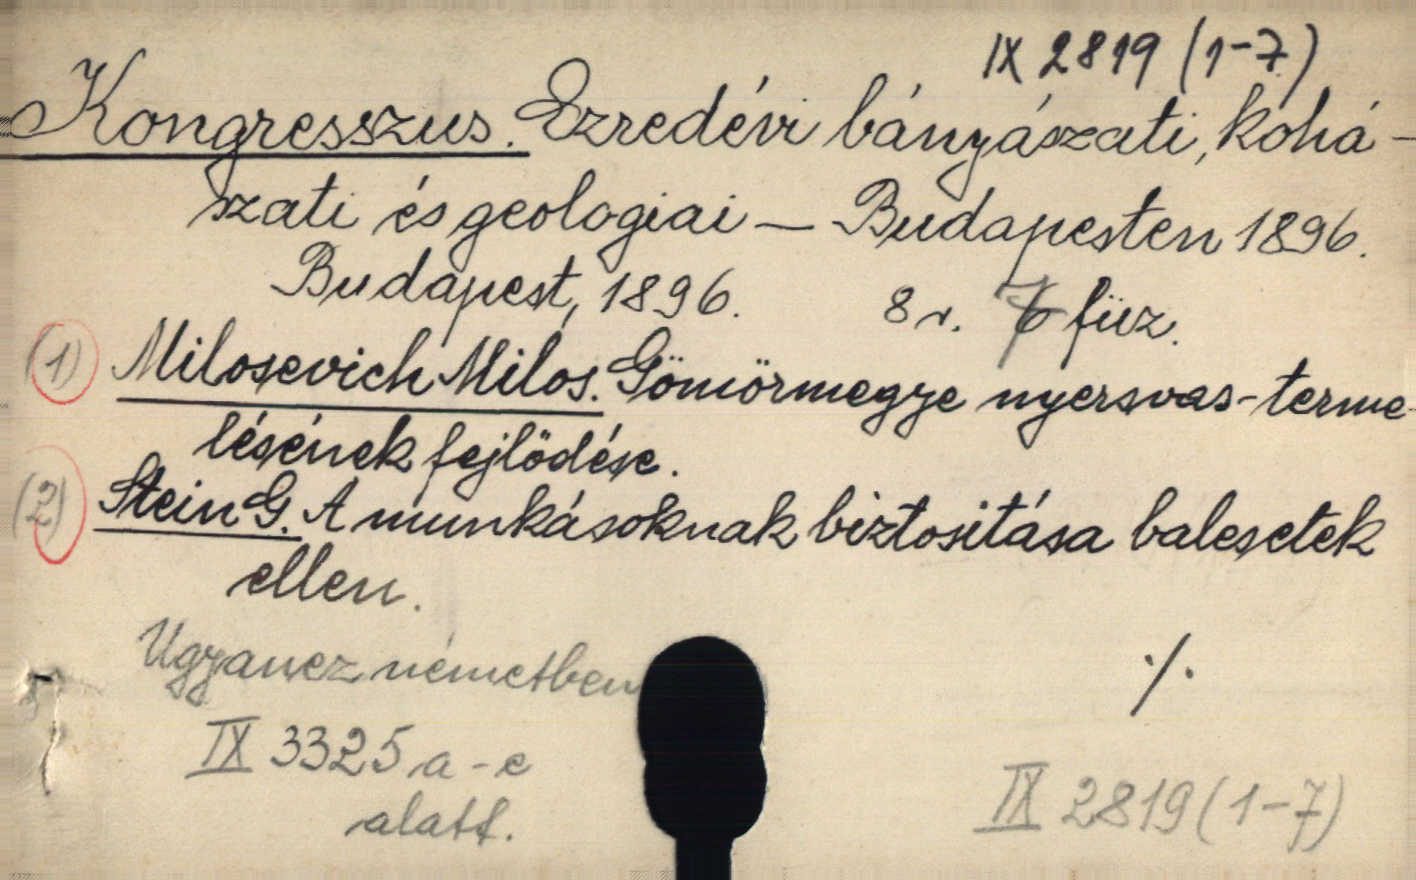 IX 2819 (1-7)
Kongresszus. Ezredévi bányászati, kohá-
szati és geologiai — Budapesten 1896.
Budapest, 1896. 8 r. 7 füz.
(1) Milosevich Milos. Gömörmegye nyersvas-terme-
lésének fejlődése.
(2) Stein G. A munkásoknak biztositása balesetek
ellen.
Ugyanez németben
IX 3325 a-e
alatt.
./.
IX 2819 (1-7)